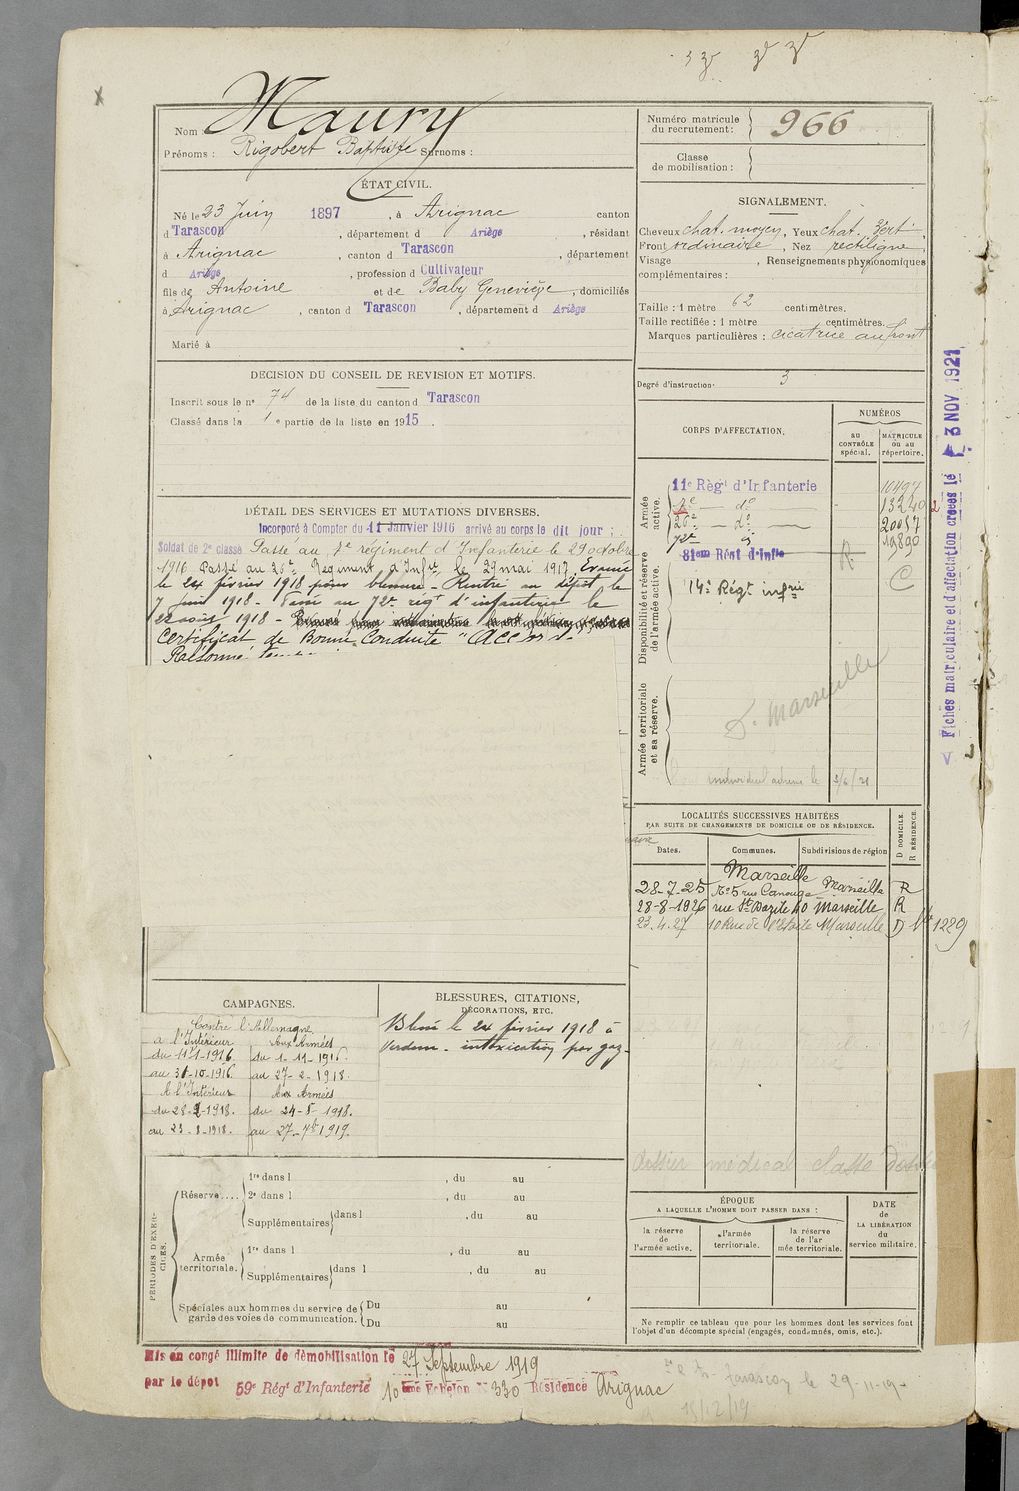 Nom Maury
Prénoms : Rigobert Baptiste Surnoms :
ÉTAT CIVIL.
Né le 23 Juin 1897, à Arignac canton
d Tarascon, département d Ariège, résidant
à Arignac, canton d Tarascon, département
d Ariège, profession d Cultivateur
fils de Antoine et de Baby Geneviève, domiciliés
à Arignac, canton d Tarascon, département d Ariège
Marié à
DECISION DU CONSEIL DE REVISION ET MOTIFS.
Inscrit sous le n° 74 de la liste du canton d Tarascon
Classé dans la 1e partie de la liste en 1915.
DÉTAIL DES SERVICES ET MUTATIONS DIVERSES.
Incorporé à Compter du 11 Janvier 1916 arrivé au corps le dit jour ;
Soldat de 2e classe Passé au 1e régiment d'Infanterie le 29 octobre
1916 Passé au 26e Regiment d'Infie le 29 mai 1917. Evacué
le 24 février 1918 pour blessure - Rentré au dépôt le
7 juin 1918 - Passé au 72e régt d'infanterie le
22 août 1918 -
Certificat de Bonne Conduite "Accordé"
CAMPAGNES.
Contre l'Allemagne
à l'Intérieur Aux Armées
du 11-1-1916 du 1-11-1916.
au 31-10-1916. au 27-2-1918.
A l'Intérieur Aux Armées
du 28-2-1918. du 24-8-1918.
au 23-8-1918. au 27-7bre 1919.
BLESSURES, CITATIONS,
DÉCORATIONS, ETC.
Blessé le 24 février 1918 à
Verdun - intoxication par gaz -
PÉRIODES D'EXERCICES.
Réserve....
1re dans l , du au
2e dans l , du au
Supplémentaires dans l , du au
Armée territoriale.
1re dans l , du au
Supplémentaires dans l , du au
Spéciales aux hommes du service de
garde des voies de communication.
Du au
Du au
Mis en congé illimité de démobilisation le 27 Septembre 1919
par le dépot 59e Régt d'Infanterie 10 ème Echelon N° 330 Résidence Arignac
Tarascon le 29-11-19-
15/12/19
Numéro matricule
du recrutement : 966
Classe
de mobilisation :
SIGNALEMENT.
Cheveux chat. moyen, Yeux chat. vert,
Front ordinaire, Nez rectiligne,
Visage , Renseignements physionomiques
complémentaires :
Taille : 1 mètre 62 centimètres.
Taille rectifiée : 1 mètre centimètres.
Marques particulières : cicatrice au front
Degré d'instruction. 3
CORPS D'AFFECTATION.
NUMÉROS
AU CONTRÔLE spécial.
MATRICULE ou au répertoire.
Armée active.
11e Régt d'Infanterie
do
26e — do —
72e
Disponibilité et réserve
de l'armée active.
81em Régt d'Infie R
14e Régt infrie C
Armée territoriale
et sa réserve.
D. Marseille
individuel 2/6/21
LOCALITÉS SUCCESSIVES HABITÉES
PAR SUITE DE CHANGEMENTS DE DOMICILE OU DE RÉSIDENCE.
Dates. Communes. Subdivisions de région D DOMICILE. R RÉSIDENCE.
Marseille
28-7-25 No 5 rue Marseille R
28-8-1926 rue Ste 40 Marseille R
23.4.27 10 Rue de l'Etoile Marseille D 1229
dossier médical classé
ÉPOQUE
A LAQUELLE L'HOMME DOIT PASSER DANS :
la réserve de l'armée active.
l'armée territoriale.
la réserve de l'ar mée territoriale.
DATE de LA LIBÉRATION du service militaire.
Ne remplir ce tableau que pour les hommes dont les services font
l'objet d'un décompte spécial (engagés, condamnés, omis, etc.).
Fiches matriculaire et d'affectation créées le 3 NOV 1921